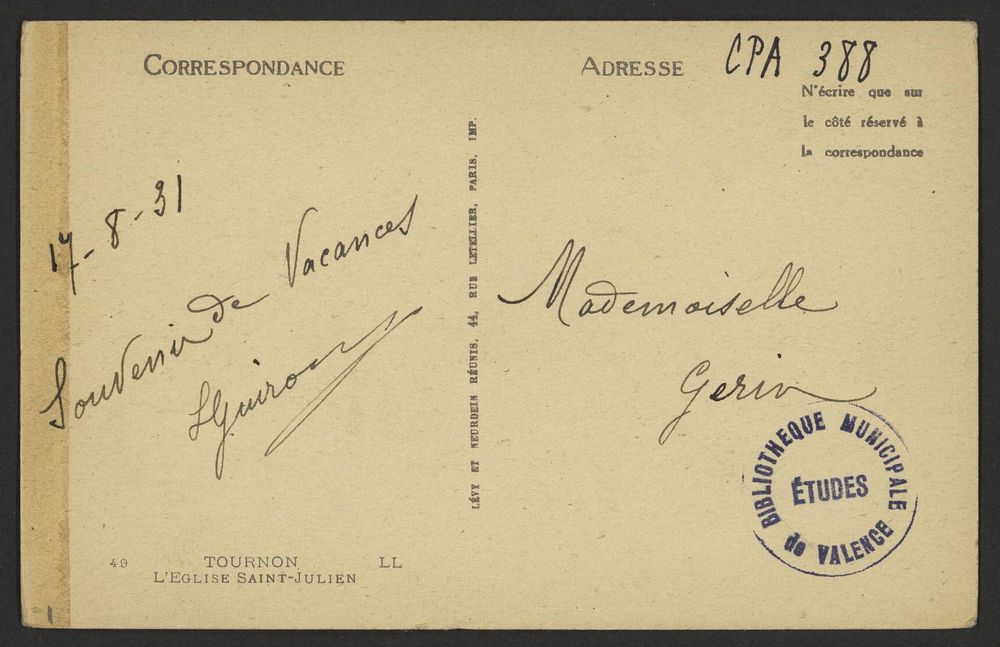 CORRESPONDANCE
ADRESSE
CPA 388
N'écrire que sur
le côté réservé à
la correspondance
17-8-31
Souvenir de Vacances
LÉVY ET NEURDEIN RÉUNIS, 44, RUE LETELLIER, PARIS, IMP.
Mademoiselle
Gerin
BIBLIOTHEQUE MUNICIPALE
ÉTUDES
de VALENCE
49 TOURNON LL
L'EGLISE SAINT-JULIEN
1